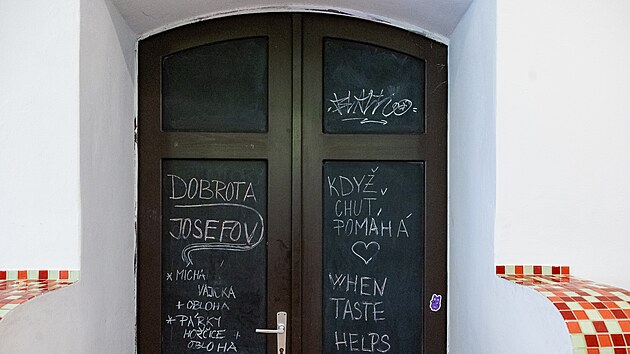 DOBROTA
JOSEFOV
* MÍCHA
VAJÍČKA
+ OBLOHA
* PÁRKY
HOŘČICE +
OBLOHA
KDYŽ
CHUŤ
POMÁHÁ
WHEN
TASTE
HELPS